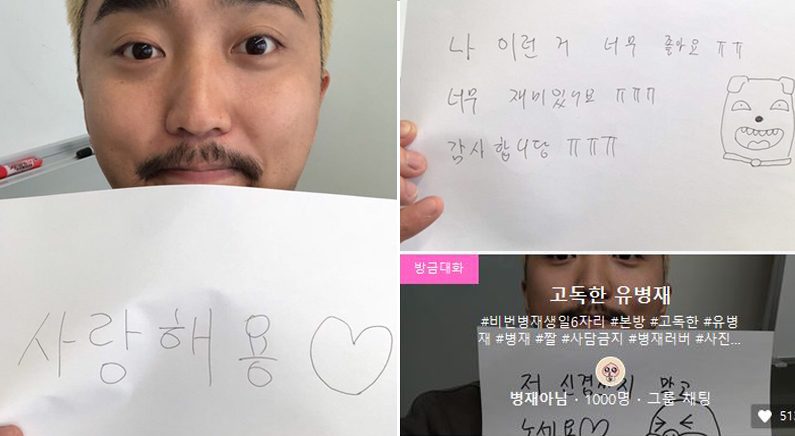 사랑해용♡
나 이런 거 너무 좋아요 ㅠㅠ
너무 재미있어요 ㅠㅠㅠ
감사합니당 ㅠㅠㅠ
방금대화
고독한 유병재
#비번병재생일6자리 #본방 #고독한 #유병
재 #병재 #짤 #사담금지 #병재러버 #사진...
저 신경쓰지 말고
병재아님 · 1000명 · 그룹 채팅
노세요♡